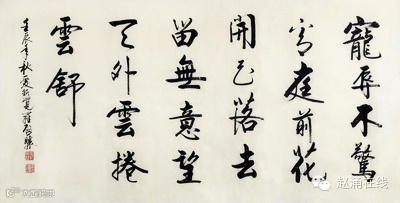 寵辱不驚
看庭前花
開花落去
留無意望
天外雲捲
雲舒
壬辰年秋愛新覺羅啟驤
赵涌在线